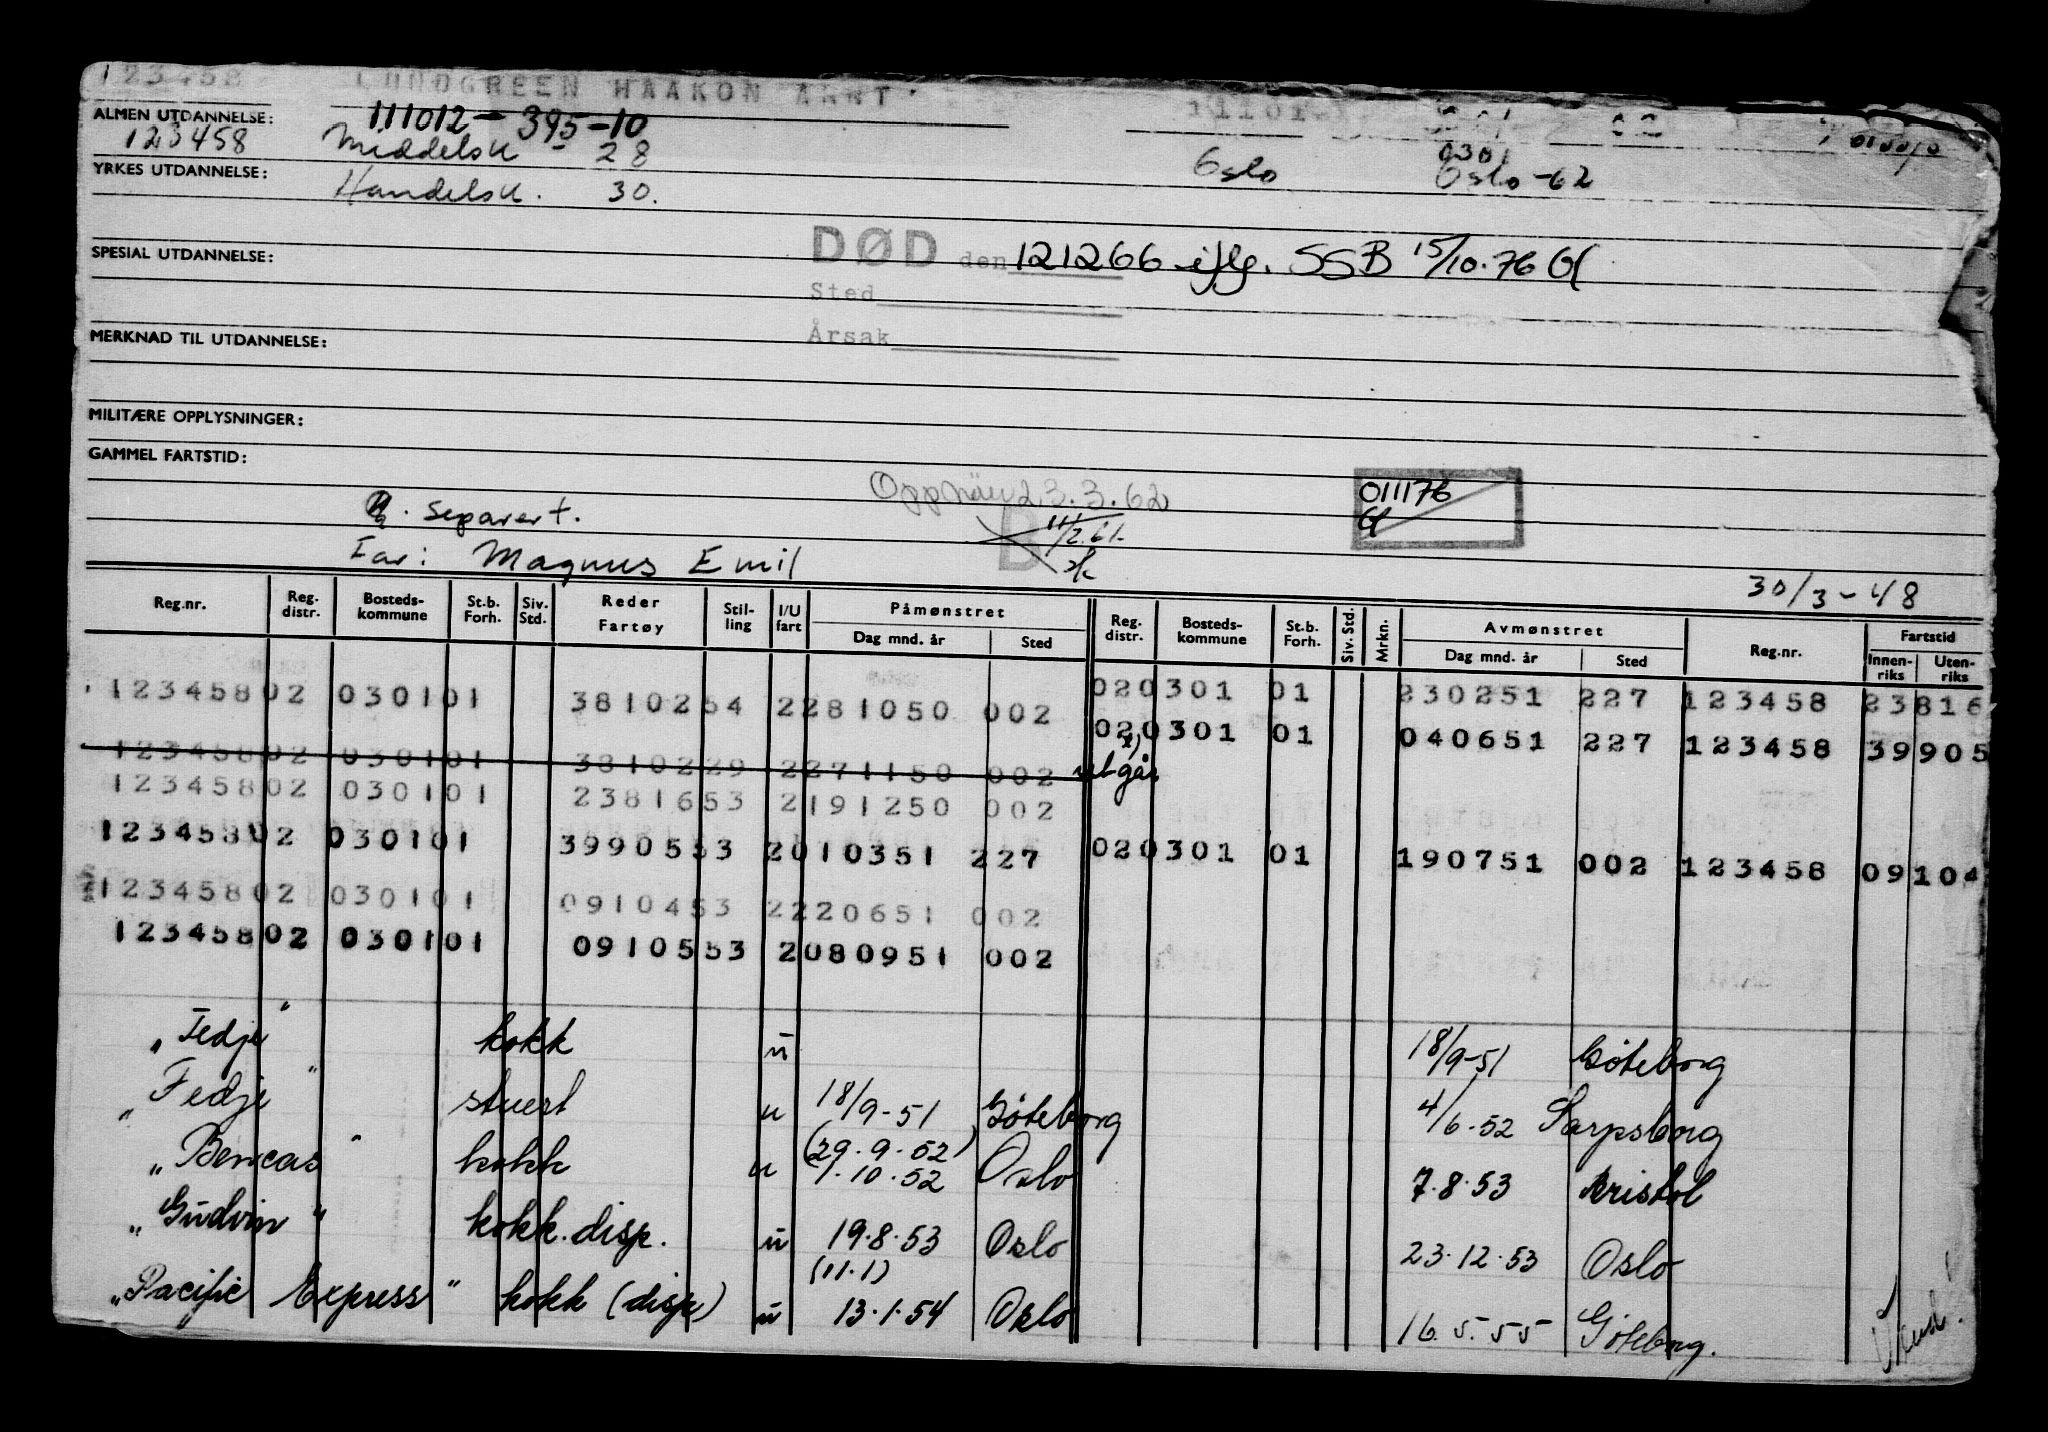 123458 LUNDGREEN HAAKON
ALMEN UTDANNELSE: 111012-395-10
123458 Middelsk - 28 Oslo 0301 Oslo -62
YRKES UTDANNELSE: Handelsk. 30.
DØD den 121266 iflg. SSB 15/10.76 Gf
SPESIAL UTDANNELSE:
Sted
Årsak
MERKNAD TIL UTDANNELSE:
MILITÆRE OPPLYSNINGER:
GAMMEL FARTSTID:
Opphäv 23.3.62 011176
separert. 11/2.61. Gf
Far: Magnus Emil D
30/3-48
Reg.nr. Reg. distr. Bosteds-kommune St.b. Forh. Siv. Std. Reder Fartøy Stil-ling I/U fart Påmønstret Dag mnd. år Sted Reg. distr. Bosteds-kommune St.b. Forh. Siv. Std. Mrkn. Avmønstret Dag mnd. år Sted Reg.nr. Fartstid Innen-riks Uten-riks
12345802 030101 3810254 2281050 002 020301 01 230251 227 123458 23816
020301 01 040651 227 123458 39905
12345802 030101 3810229 2271150 002 x) utgår
12345802 030101 2381653 2191250 002
12345802 030101 3990553 2010351 227 020301 01 190751 002 123458 09104
12345802 030101 0910453 2220651 002
12345802 030101 0910553 2080951 002
"Fedje" kokk u 18/9-51 Göteborg
"Fedje" stuert u 18/9-51 Göteborg 4/6.52 Sarpsborg
(29.9.52)
"Benicas" kokk u 1.10.52 Oslo 7.8.53 Bristol
"Gudvin" kokk.disp. u 19.8.53 Oslo 23.12.53 Oslo
(11.1)
"Pacific Express" kokk (disp) u 13.1.54 Oslo 16.5.55 Göteborg.